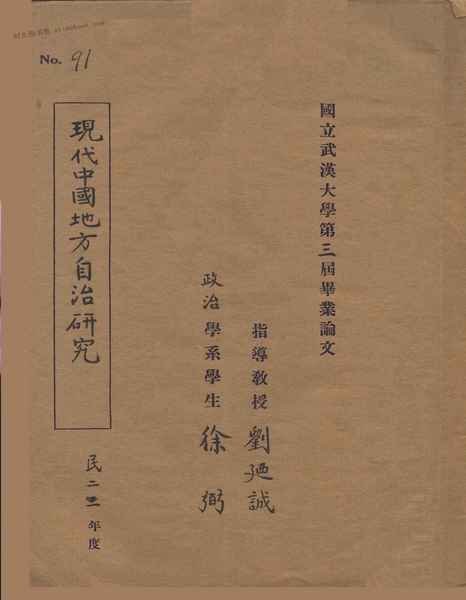 No. 91
國立武漢大學第三屆畢業論文
指導教授 劉廼誠
政治學系學生 徐弼
現代中國地方自治研究
民二三年度